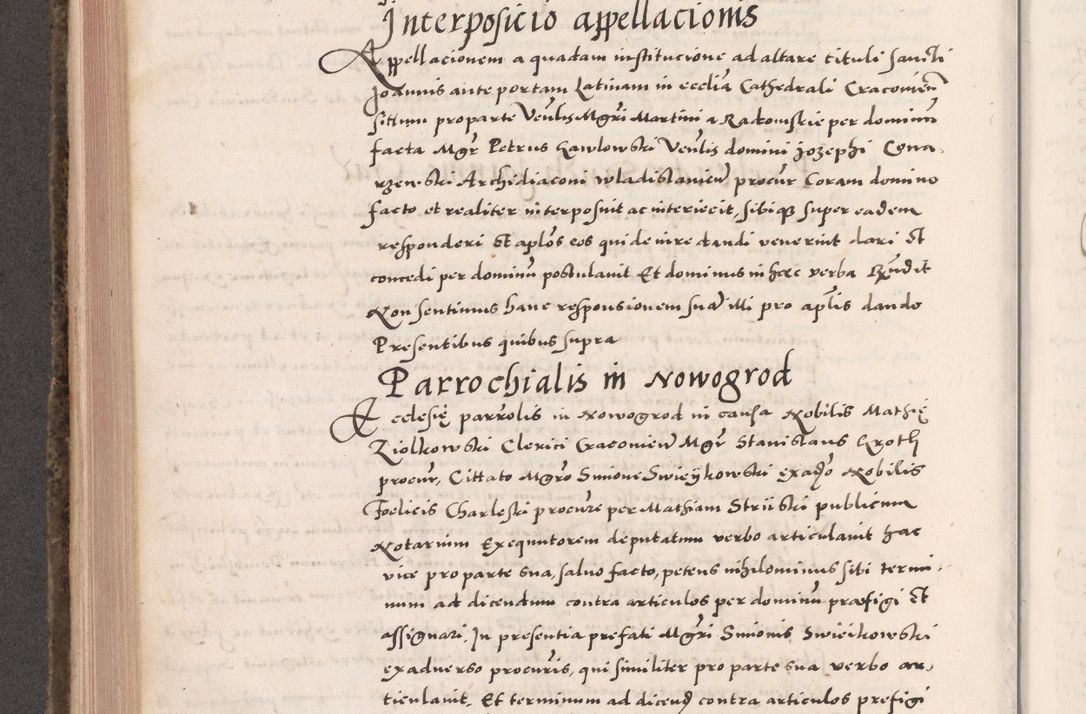 Interposicio appellacionis
Appellacionem a quadam institucione ad altare tituli Sancti
Joannis ante portam Latinam in ecclia Cathedrali Cracovien
situm pro parte Venlis Mgri Martini a Radomskie per dominum
facta Mgr Petrus Gawlowski Venlis domini Jozephi Cona
rzewski Archidiaconi wladislavien procur Coram domino
facto et realiter interposuit ac interiecit, sibique super eadem
responderi Et aplos eos qui de iure dandi venerint dari Et
concedi per dominum postulavit. Et dominus in hec verba Rndit
Non sentimus hanc responsionem sua illi pro aplis dando
Presentibus quibus supra
Parrochialis in Nowogrod
Ecclesię parrolis in Nowogrod in causa Nobilis Mathię
Ziolkowski Clerici Cracovien Mgr Stanislaus Groth
procur, Cittato Mgro Simone Swieykowski ex adso Nobilis
Foelicis Charleski procure per Mathiam Striiski publicum
Notarium Exequutorem deputatum verbo articulavit hac
vice pro parte sua, salvo facto, petens nihilominus sibi termi,
num ad dicendum contra articulos per dominum præfigi Et
assignari. In presentia prefati Mgri Simonis Swieikowski
ex adverso procuris, qui similiter pro parte sua verbo ar,
ticulavit. Et terminum ad dicend contra articulos prefigi